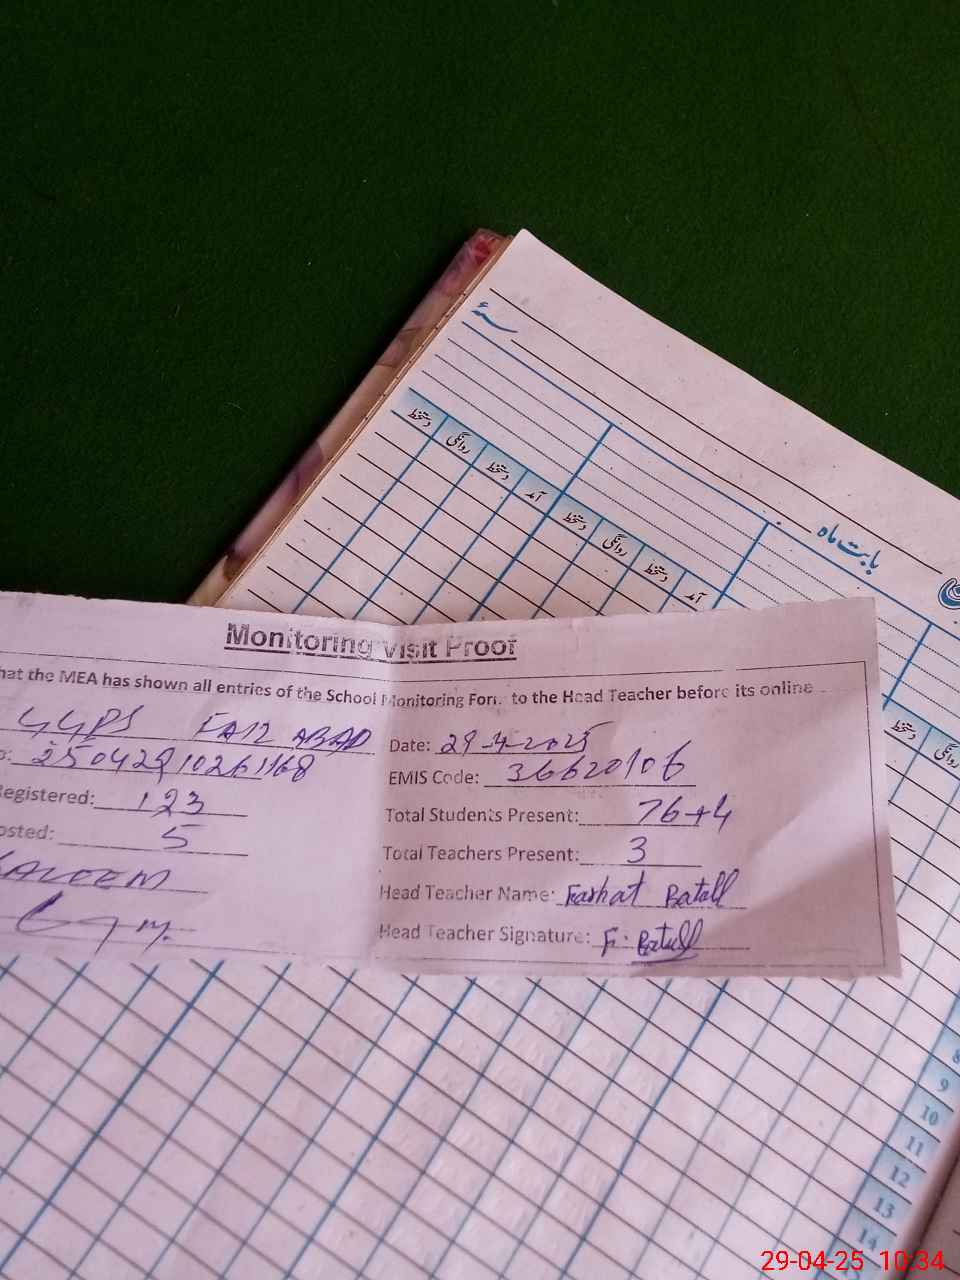 سنۂ
بابت ماہ
دستخط روانگی دستخط آمد دستخط روانگی دستخط آمد
دستخط روانگی
Monitoring Visit Proof
hat the MEA has shown all entries of the School Monitoring Form to the Head Teacher before its online
GGPS
Date: 29-4-2025
o: 25042910261168
EMIS Code: 36620106
Registered: 123
Total Students Present: 76+4
osted: 5
Total Teachers Present: 3
SALEEM
Head Teacher Name: Farhat Batull
Head Teacher Signature: F. Batull
8
9
10
11
12
13
14
29-04-25 10:34